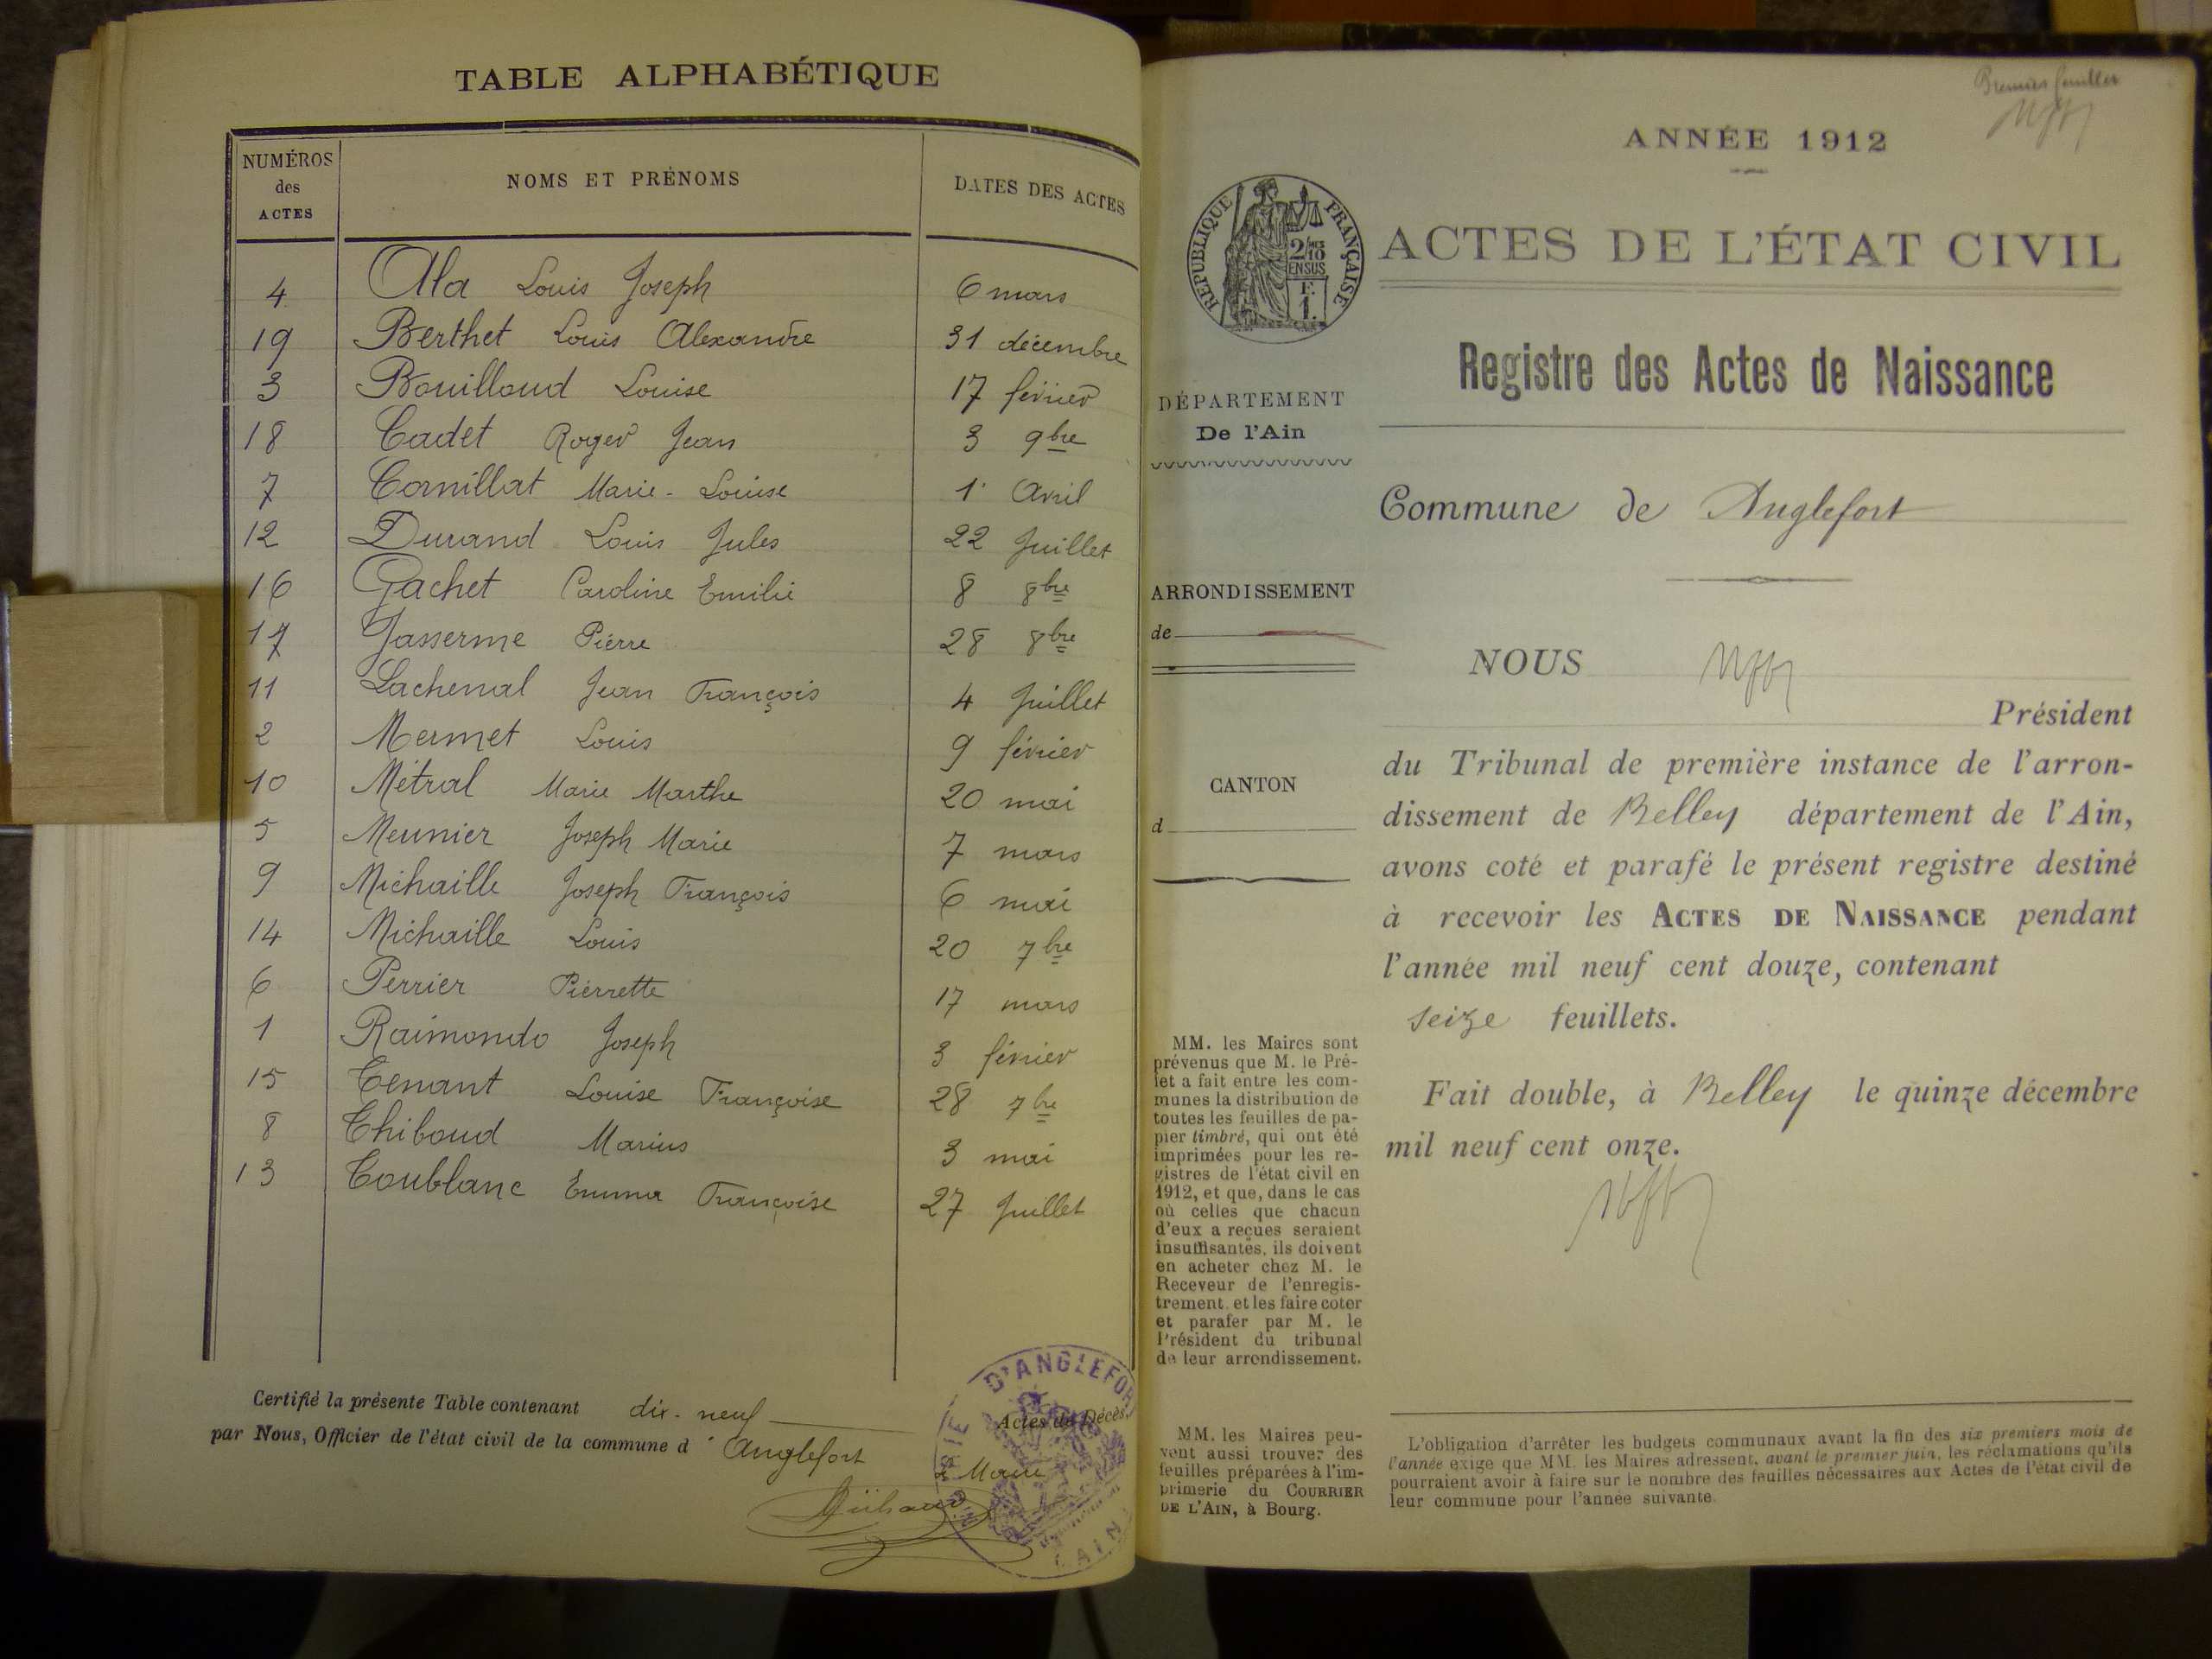 TABLE ALPHABÉTIQUE
NUMÉROS des ACTES
NOMS ET PRÉNOMS
DATES DES ACTES
4 Ala Louis Joseph 6 mars
19 Berthet Louis Alexandre 31 décembre
3 Bouilloud Louise 17 février
18 Cadet Roger Jean 3 9bre
7 Cornillat Marie-Louise 1 Avril
12 Durand Louis Jules 22 Juillet
16 Gachet Caroline Emilie 8 8bre
17 Jasserme Pierre 28 8bre
11 Lachenal Jean François 4 Juillet
2 Mermet Louis 9 février
10 Métral Marie Marthe 20 mai
5 Meunier Joseph Marie 7 mars
9 Michaille Joseph François 6 mai
14 Michaille Louis 20 7bre
6 Perrier Pierrette 17 mars
1 Raimondo Joseph 3 février
15 Tenant Louise Françoise 28 7bre
8 Thiboud Marius 3 mai
13 Toublanc Emma Françoise 27 Juillet
Certifié la présente Table contenant dix-neuf Actes de Décès,
par Nous, Officier de l'état civil de la commune d' Anglefort
Le Maire
D'ANGLEFOR
AIN
Premier feuillet
ANNÉE 1912
RÉPUBLIQUE FRANÇAISE
2/10
EN SUS
F.
1.
ACTES DE L'ÉTAT CIVIL
Registre des Actes de Naissance
DÉPARTEMENT
De l'Ain
Commune de Anglefort
ARRONDISSEMENT
de
CANTON
d
NOUS
Président
du Tribunal de première instance de l'arron-
dissement de Belley département de l'Ain,
avons coté et parafé le présent registre destiné
à recevoir les ACTES DE NAISSANCE pendant
l'année mil neuf cent douze, contenant
seize feuillets.
Fait double, à Belley le quinze décembre
mil neuf cent onze.
MM. les Maires sont
prévenus que M. le Pré-
fet a fait entre les com-
munes la distribution de
toutes les feuilles de pa-
pier timbré, qui ont été
imprimées pour les re-
gistres de l'état civil en
1912, et que, dans le cas
où celles que chacun
d'eux a reçues seraient
insuffisantes, ils doivent
en acheter chez M. le
Receveur de l'enregis-
trement, et les faire coter
et parafer par M. le
Président du tribunal
de leur arrondissement.
MM. les Maires peu-
vent aussi trouver des
feuilles préparées à l'im-
primerie du COURRIER
DE L'AIN, à Bourg.
L'obligation d'arrêter les budgets communaux avant la fin des six premiers mois de
l'année exige que MM. les Maires adressent, avant le premier juin, les réclamations qu'ils
pourraient avoir à faire sur le nombre des feuilles nécessaires aux Actes de l'état civil de
leur commune pour l'année suivante.